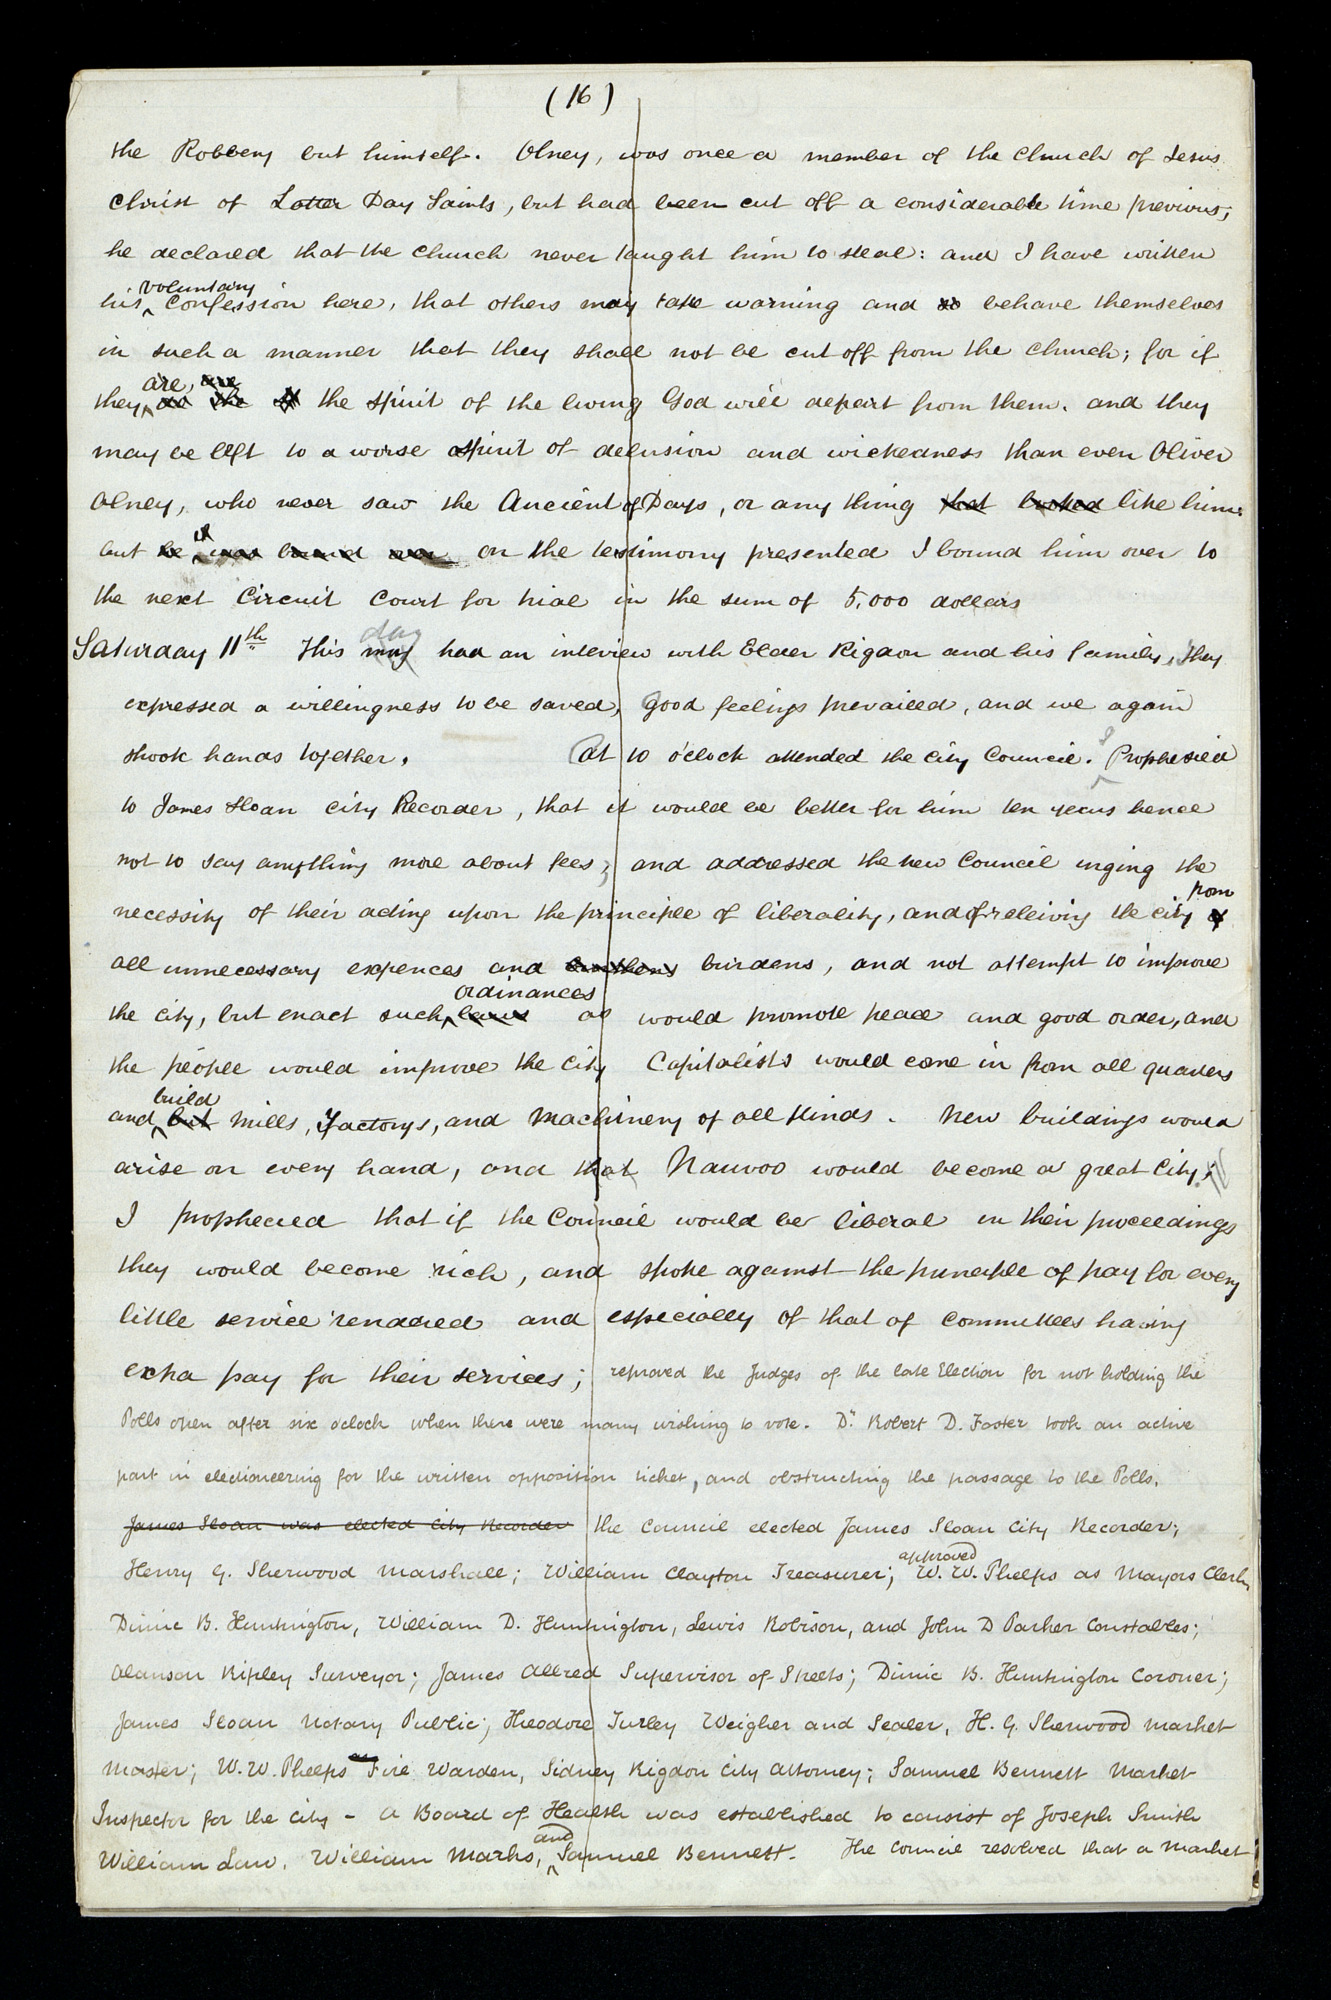 (16)
the Robbery but himself. Olney, was once a member of the Church of Jesus
Christ of Latter Day Saints, but had been cut off a considerable time previous;
he declared that the Church never taught him to steal: and I have written
voluntary
his confession here, that others may take warning and so behave themselves
in such a manner that they shall not be cut off from the Church; for if
are, are
they do the the spirit of the living God will depart from them. and they
may be left to a worse spirit of delusion and wickedness than even Oliver
Olney, who never saw the Ancient of Days, or any thing that looked like him:
but he was bound over on the testimony presented I bound him over to
the next Circuit Court for trial in the sum of 5,000 dollars
day
Saturday 11th This mng had an interview with Elder Rigdon and his family, they
expressed a willingness to be saved, good feelings prevailed, and we again
shook hands together. at 10 o'clock attended the City Council. I Prophesied
to James Sloan City Recorder, that it would be better for him ten years hence
not to say anything more about fees; and addressed the new Council urging the
from
necessity of their acting upon the principle of liberality, and of releiving the city of
all unnecessary expences and burthens burdens, and not attempt to improve
ordinances
the city, but enact such laws as would promote peace and good order, and
the people would improve the city Capitalists would come in from all quarters
build
and but mills, factorys, and machinery of all kinds. New buildings would
arise on every hand, and that Nauvoo would become a great City,
I prophecied that if the Council would be liberal in their proceedings
they would become rich, and spoke against the principle of pay for every
little service rendered and especially of that of Committees having
extra pay for their services; reproved the Judges of the late Election for not holding the
Polls open after six oclock when there were many wishing to vote. Dr. Robert D. Foster took an active
part in electioneering for the written opposition ticket, and obstructing the passage to the Polls.
James Sloan was elected City Recorder the Council elected James Sloan City Recorder;
approved
Henry G. Sherwood Marshall; William Clayton Treasurer; W. W. Phelps as Mayors Clerk
Dimic B. Huntington, William D. Huntington, Lewis Robison, and John D Parker Constables;
Alanson Ripley Surveyor; James Allred Supervisor of Streets; Dimic B. Huntington Coroner;
James Sloan Notary Public; Theodore Turley Weigher and Sealer, H. G. Sherwood Market
Master; W. W. Phelps as Fire Warden, Sidney Rigdon City Attorney; Samuel Bennett Market
Inspector for the City – a Board of Health was established to consist of Joseph Smith
and
William Law, William Marks, Samuel Bennett. The Council resolved that a Market